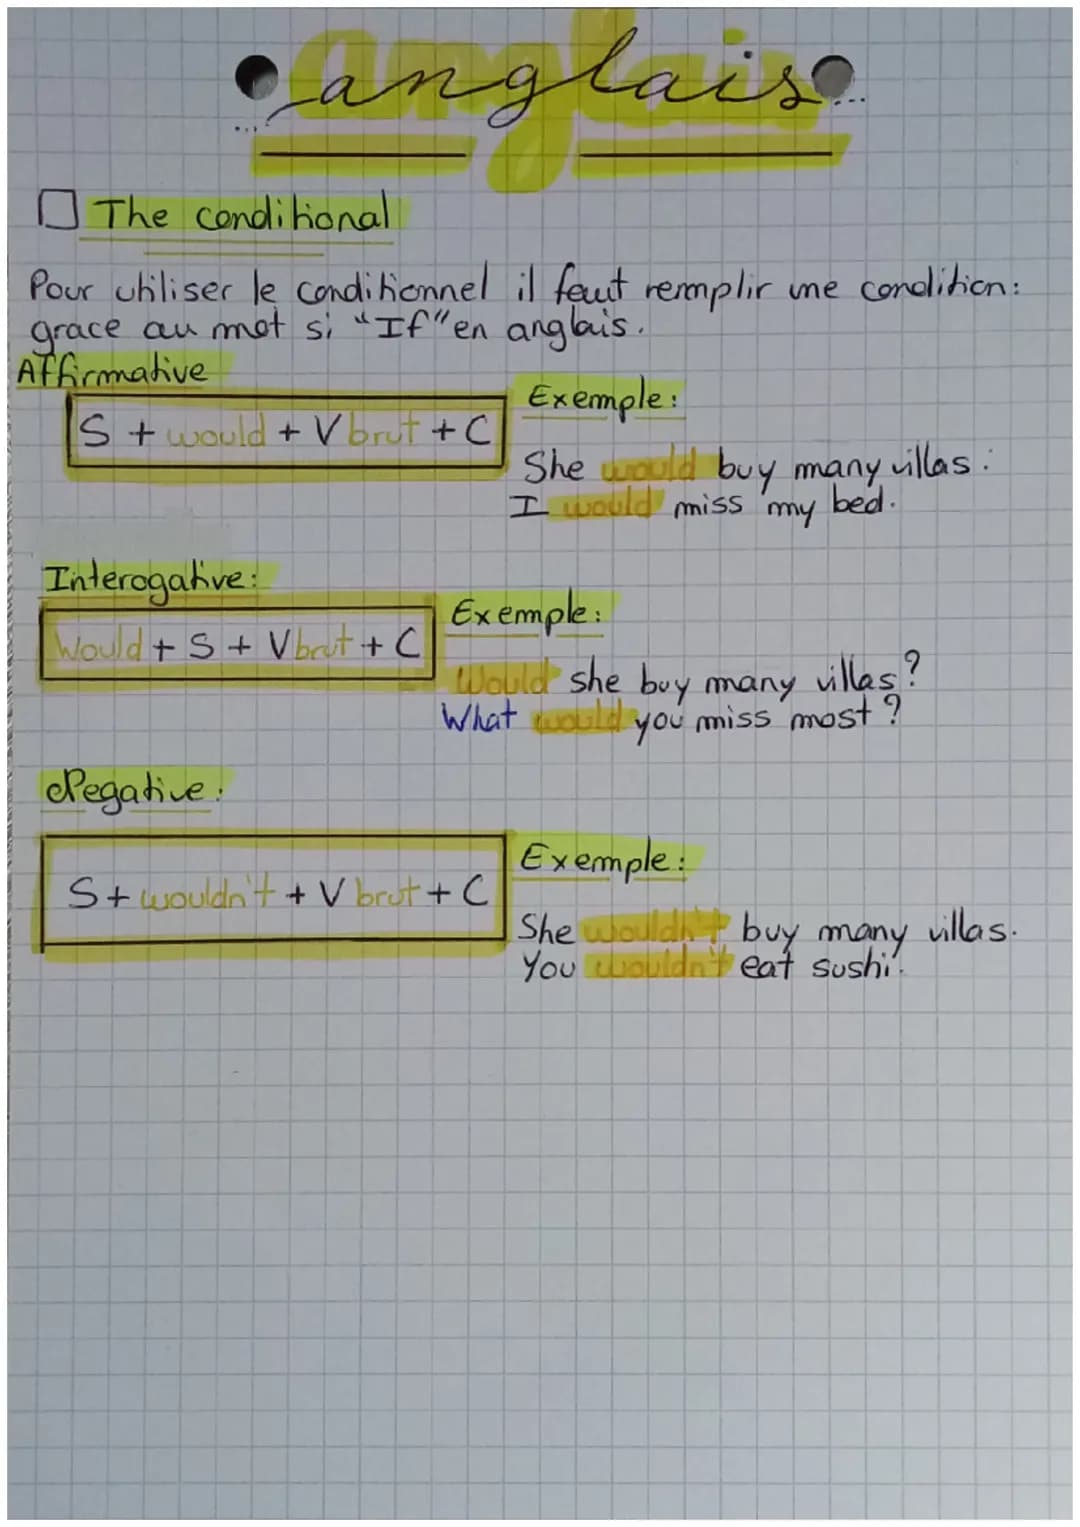 anglais
The conditional
Pour utiliser le conditionnel il faut remplir une condition:
grace au mot si "If" en anglais.
Affirmative
S + would + V brut + C
Exemple:
She would buy many villas.
I would miss my bed.
Interogative:
Would + S + V brut + C
Exemple:
Would she buy many villas?
What would you miss most?
Negative:
S + wouldn't + V brut + C
Exemple:
She wouldn't buy many villas.
You wouldn't eat sushi.